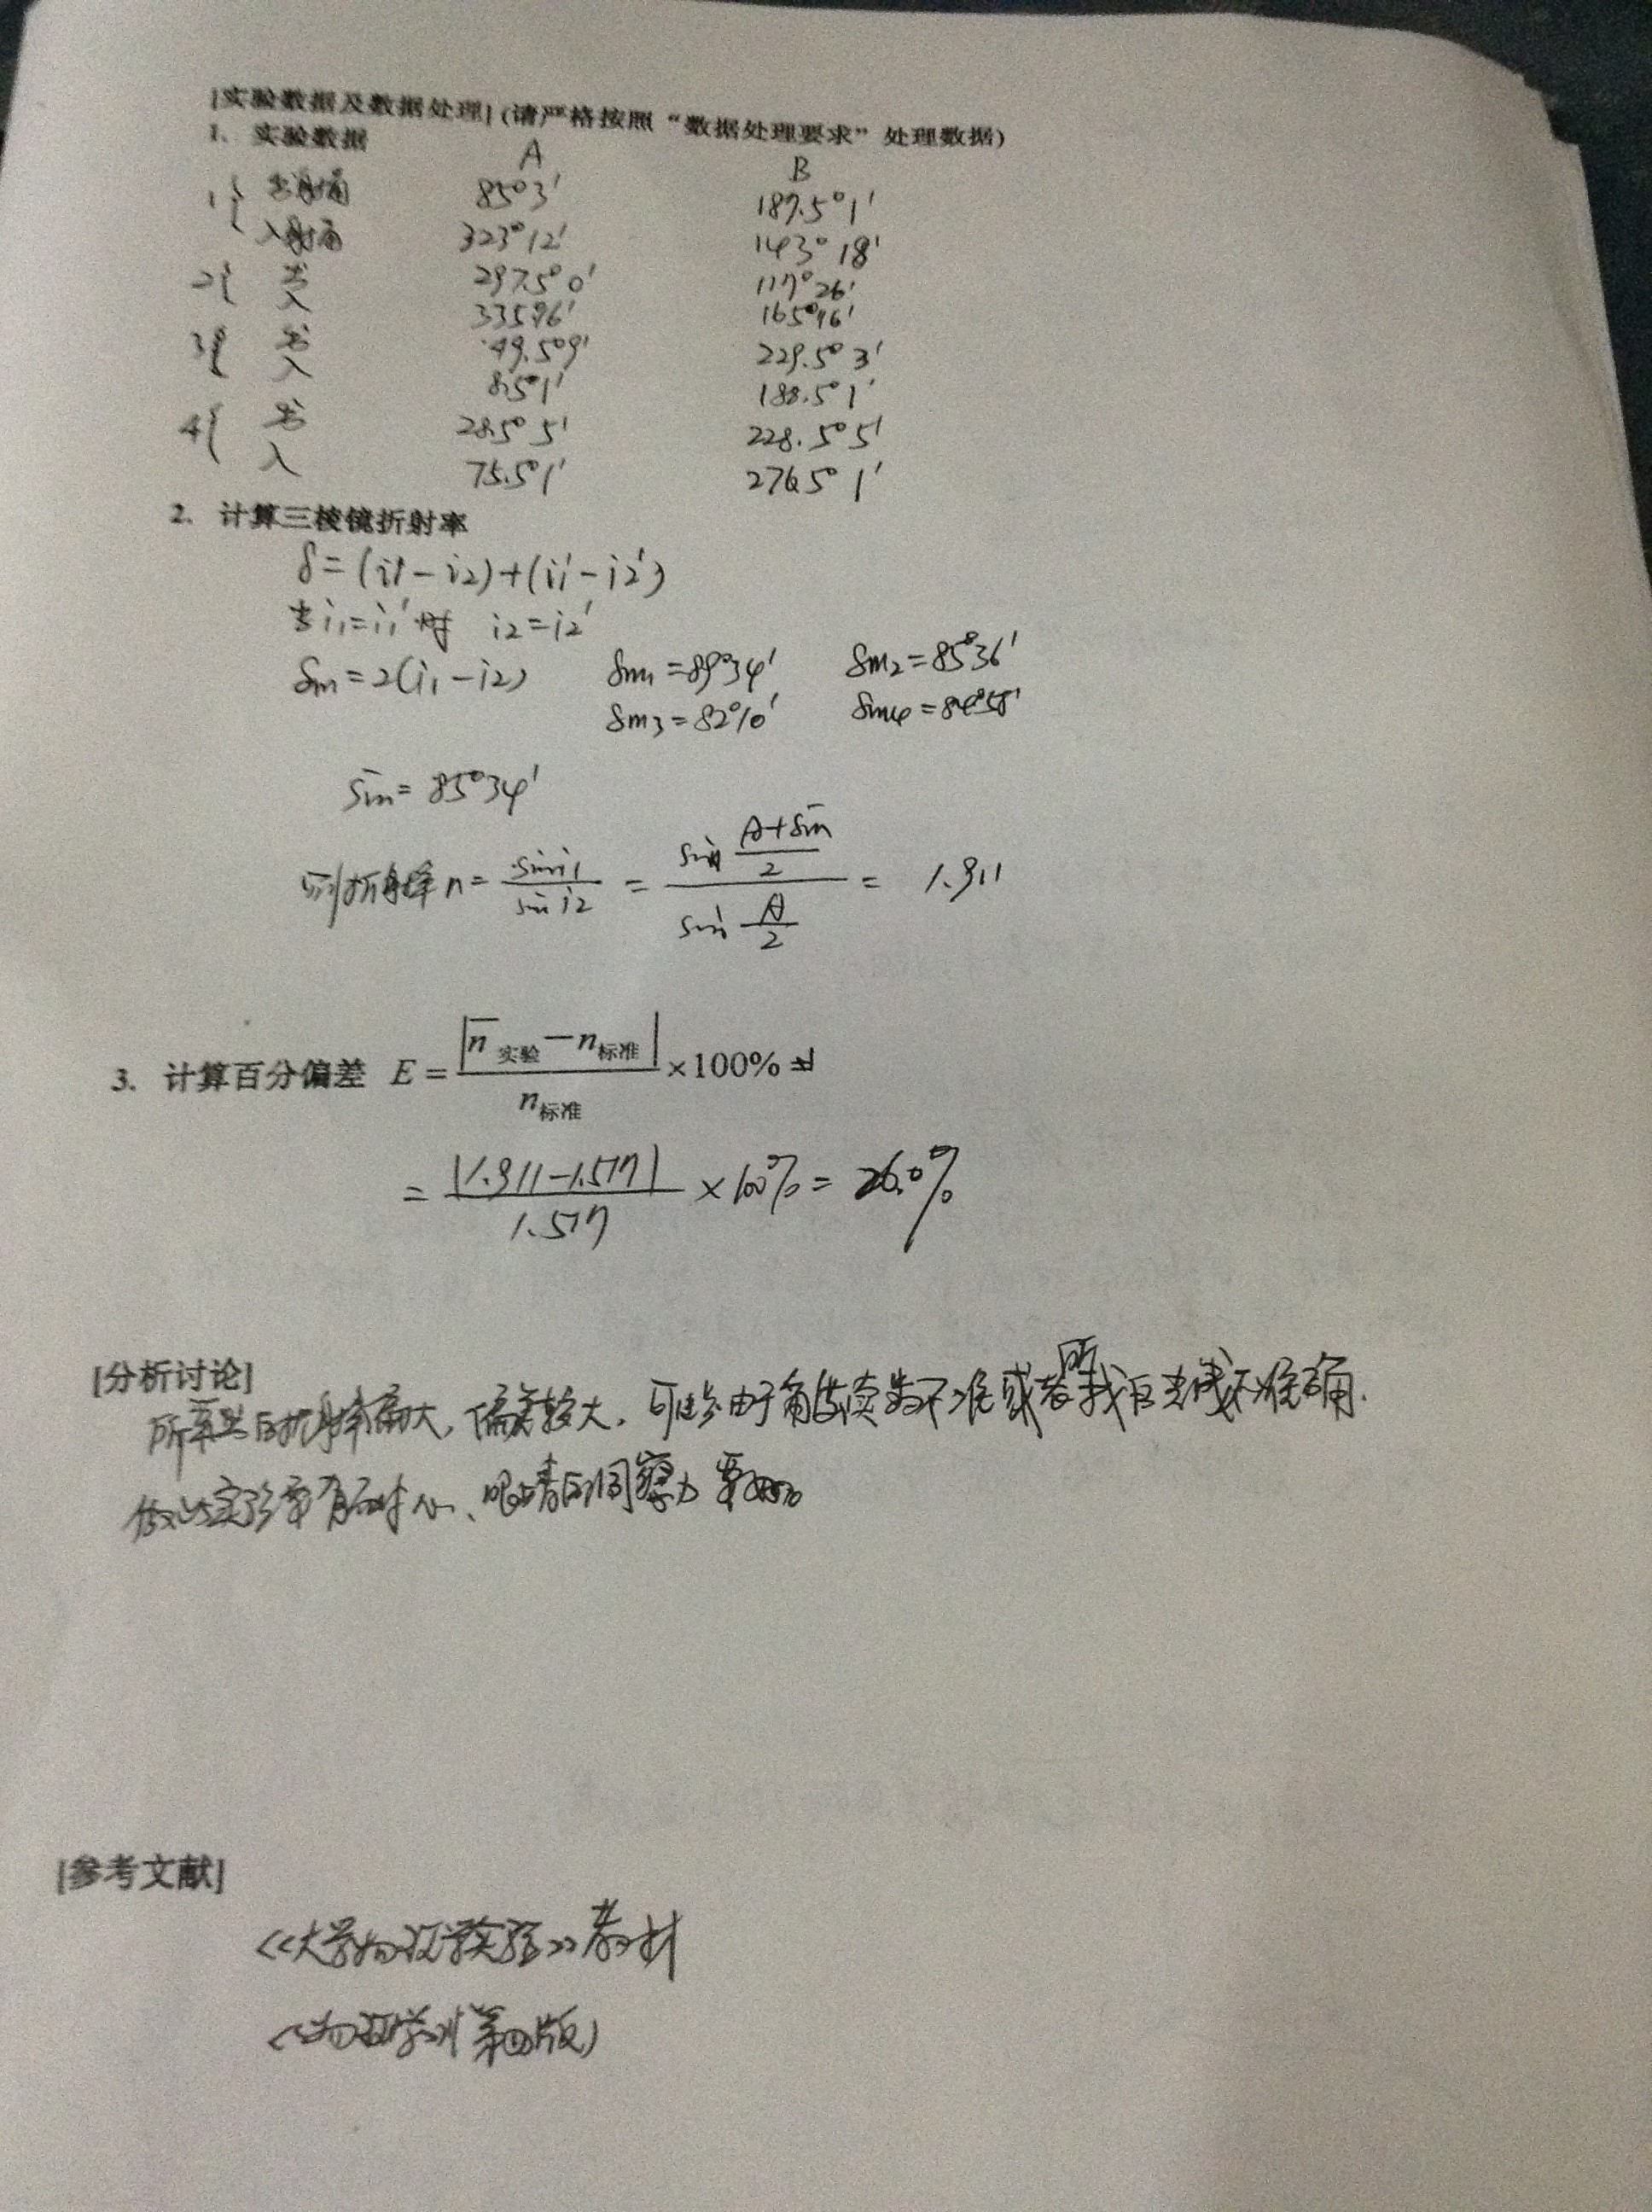 [实验数据及数据处理] (请严格按照“数据处理要求”处理数据)
1. 实验数据
A B
1{ 出射角 85°3′ 187.5°1′
入射角 323°12′ 143°18′
2{ 出 297.5°0′ 117°26′
入 335°16′ 165°16′
3{ 出 49.5°9′ 229.5°3′
入 8.5°1′ 188.5°1′
4{ 出 28.5°5′ 228.5°5′
入 75.5°1′ 276.5°1′
2. 计算三棱镜折射率
δ=(i1-i2)+(i1′-i2′)
当i1=i1′时 i2=i2′
δm=2(i1-i2) δm1=89°34′ δm2=85°36′
δm3=82°10′ δm4=84°58′
δ̄m=85°34′
则折射率n= sin i1 / sin i2 = sin (A+δ̄m)/2 / sin A/2 = 1.911
3. 计算百分偏差 E= |n̄实验-n标准| / n标准 ×100%
= |1.911-1.517| / 1.517 ×100%= 26.0%
[分析讨论]
所算出的折射率偏大,偏差较大,可能由于角度读数不准或者所找的去线不准确.
做此实验需有耐心、眼睛的洞察力要好。
[参考文献]
<<大学物理学实验>>教材
<<物理学>>(第四版)